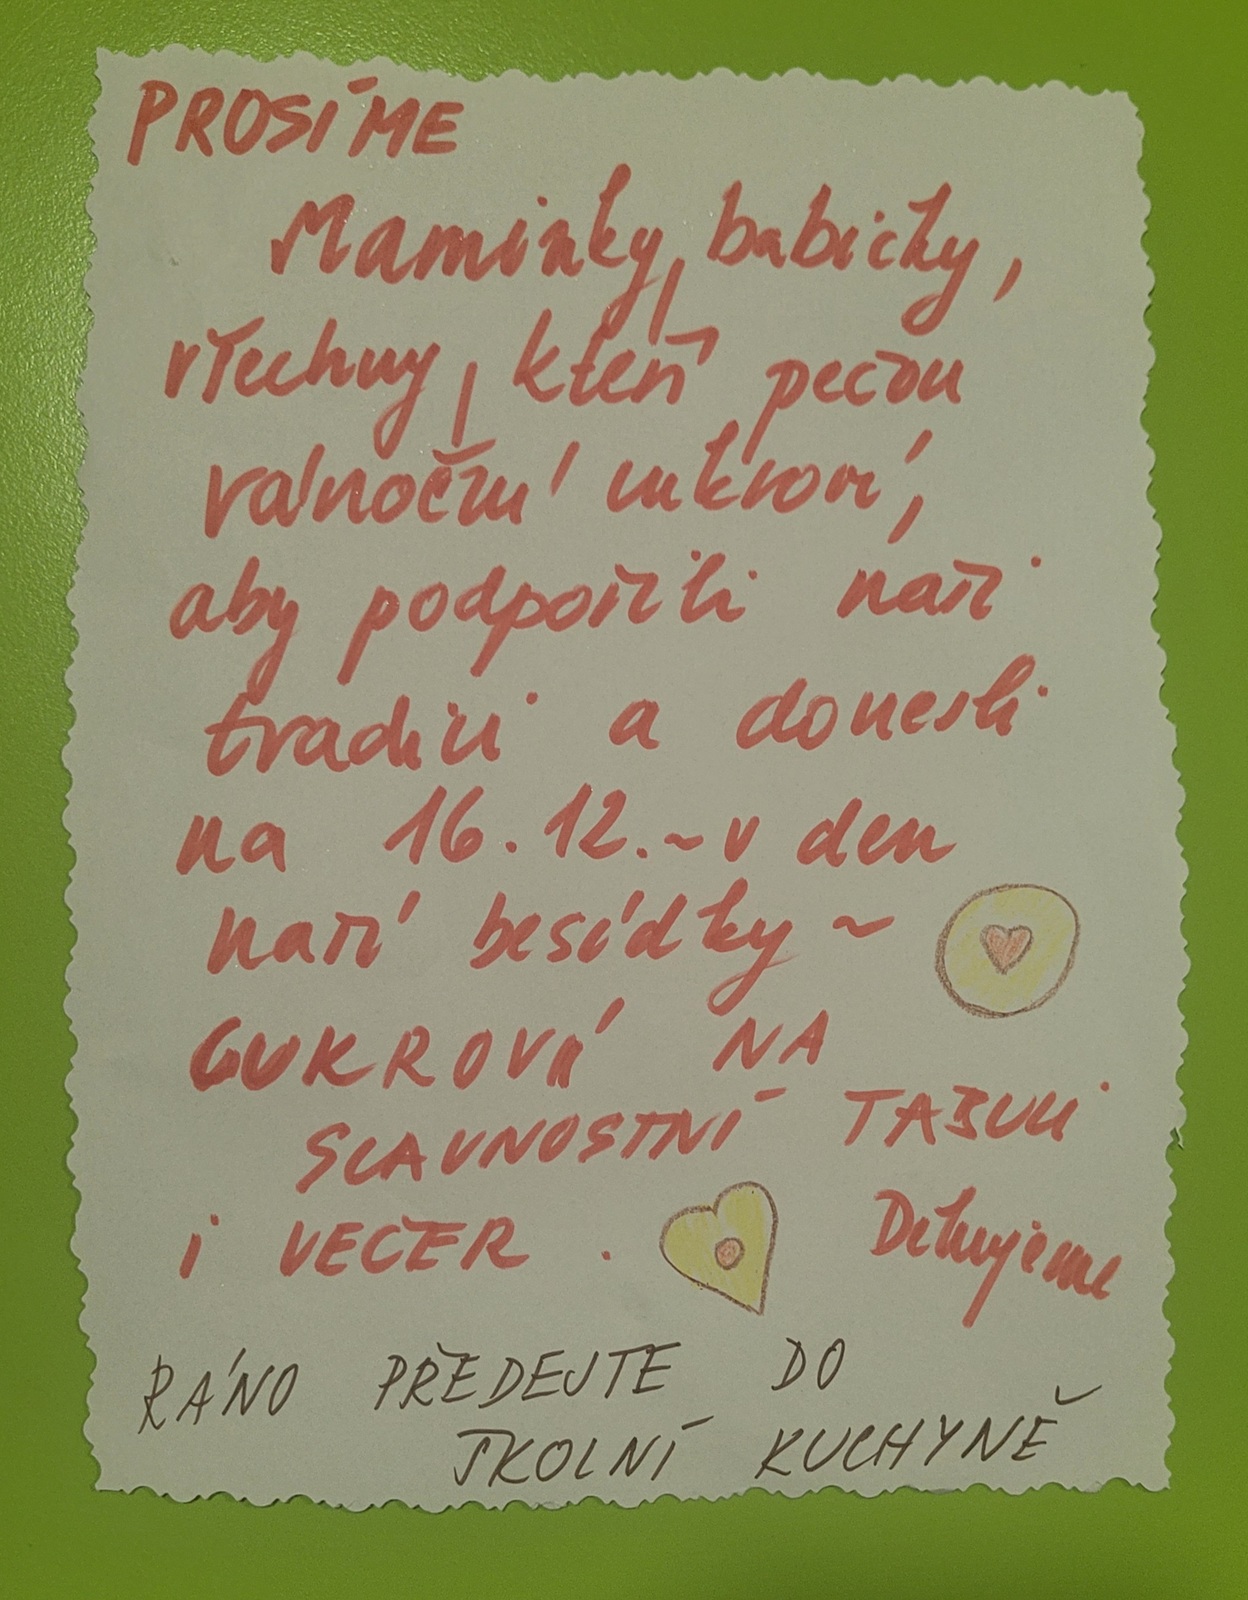 PROSÍME
Maminky, babičky,
všechny, kteří pečou
vánoční cukroví,
aby podpořili naši
tradici a donesli
na 16.12.~ v den
naší besídky ~
CUKROVÍ NA
SLAVNOSTNÍ TABULI
i VEČER. Děkujeme
RÁNO PŘEDEJTE DO
ŠKOLNÍ KUCHYNĚ